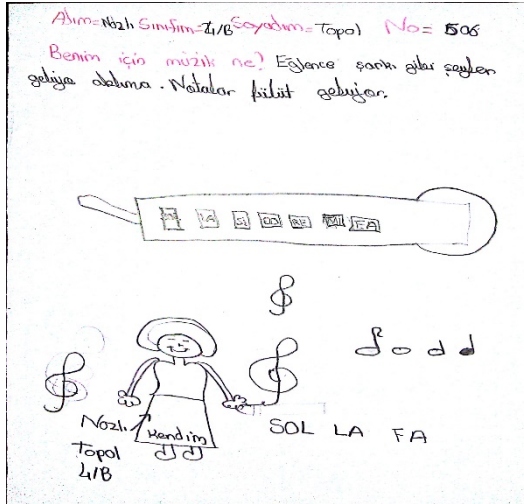 Adım=Nazlı Sınıfım=4/B Soyadım=Topal No= 506
Benim için müzik ne? Eğlence şarkı gibi şeyler
geliyo aklıma. Notalar fülüt geliyor.
LA Sİ DO RE Mİ FA
SOL LA FA
Nazlı Kendim
Topal
4/B